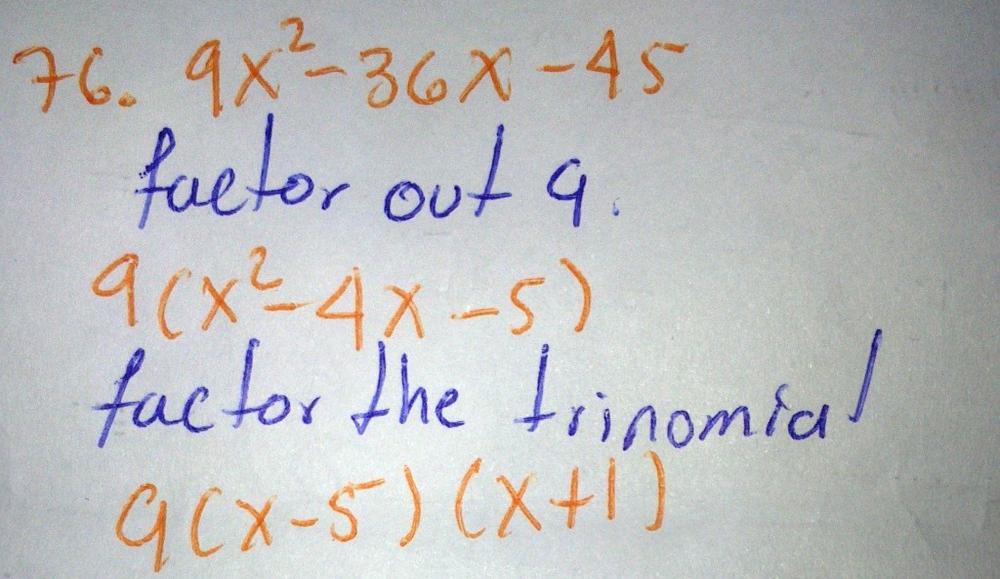 76. 9x²-36x-45
factor out 9.
9(x²-4x-5)
factor the trinomial
9(x-5)(x+1)